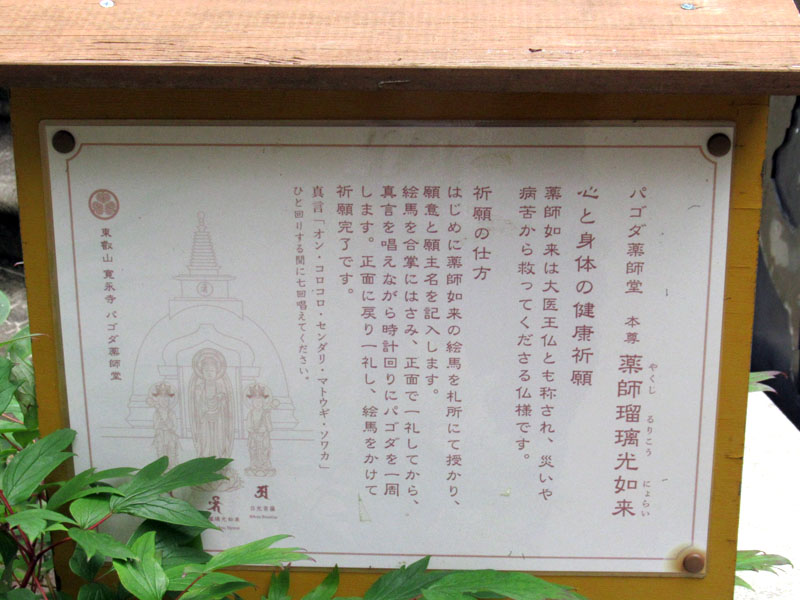 パゴダ薬師堂 本尊 薬師瑠璃光如来
やくし るりこう にょらい
心と身体の健康祈願
薬師如来は大医王仏とも称され、災いや
病苦から救ってくださる仏様です。
祈願の仕方
はじめに薬師如来の絵馬を札所にて授かり、
願意と願主名を記入します。
絵馬を合掌にはさみ、正面で一礼してから、
真言を唱えながら時計回りにパゴダを一周
します。正面に戻り一礼し、絵馬をかけて
祈願完了です。
真言「オン・コロコロ・センダリ・マトウギ・ソワカ」
ひと回りする間に七回唱えてください。
日光菩薩
瑠璃光如来
東叡山 寛永寺 パゴダ薬師堂